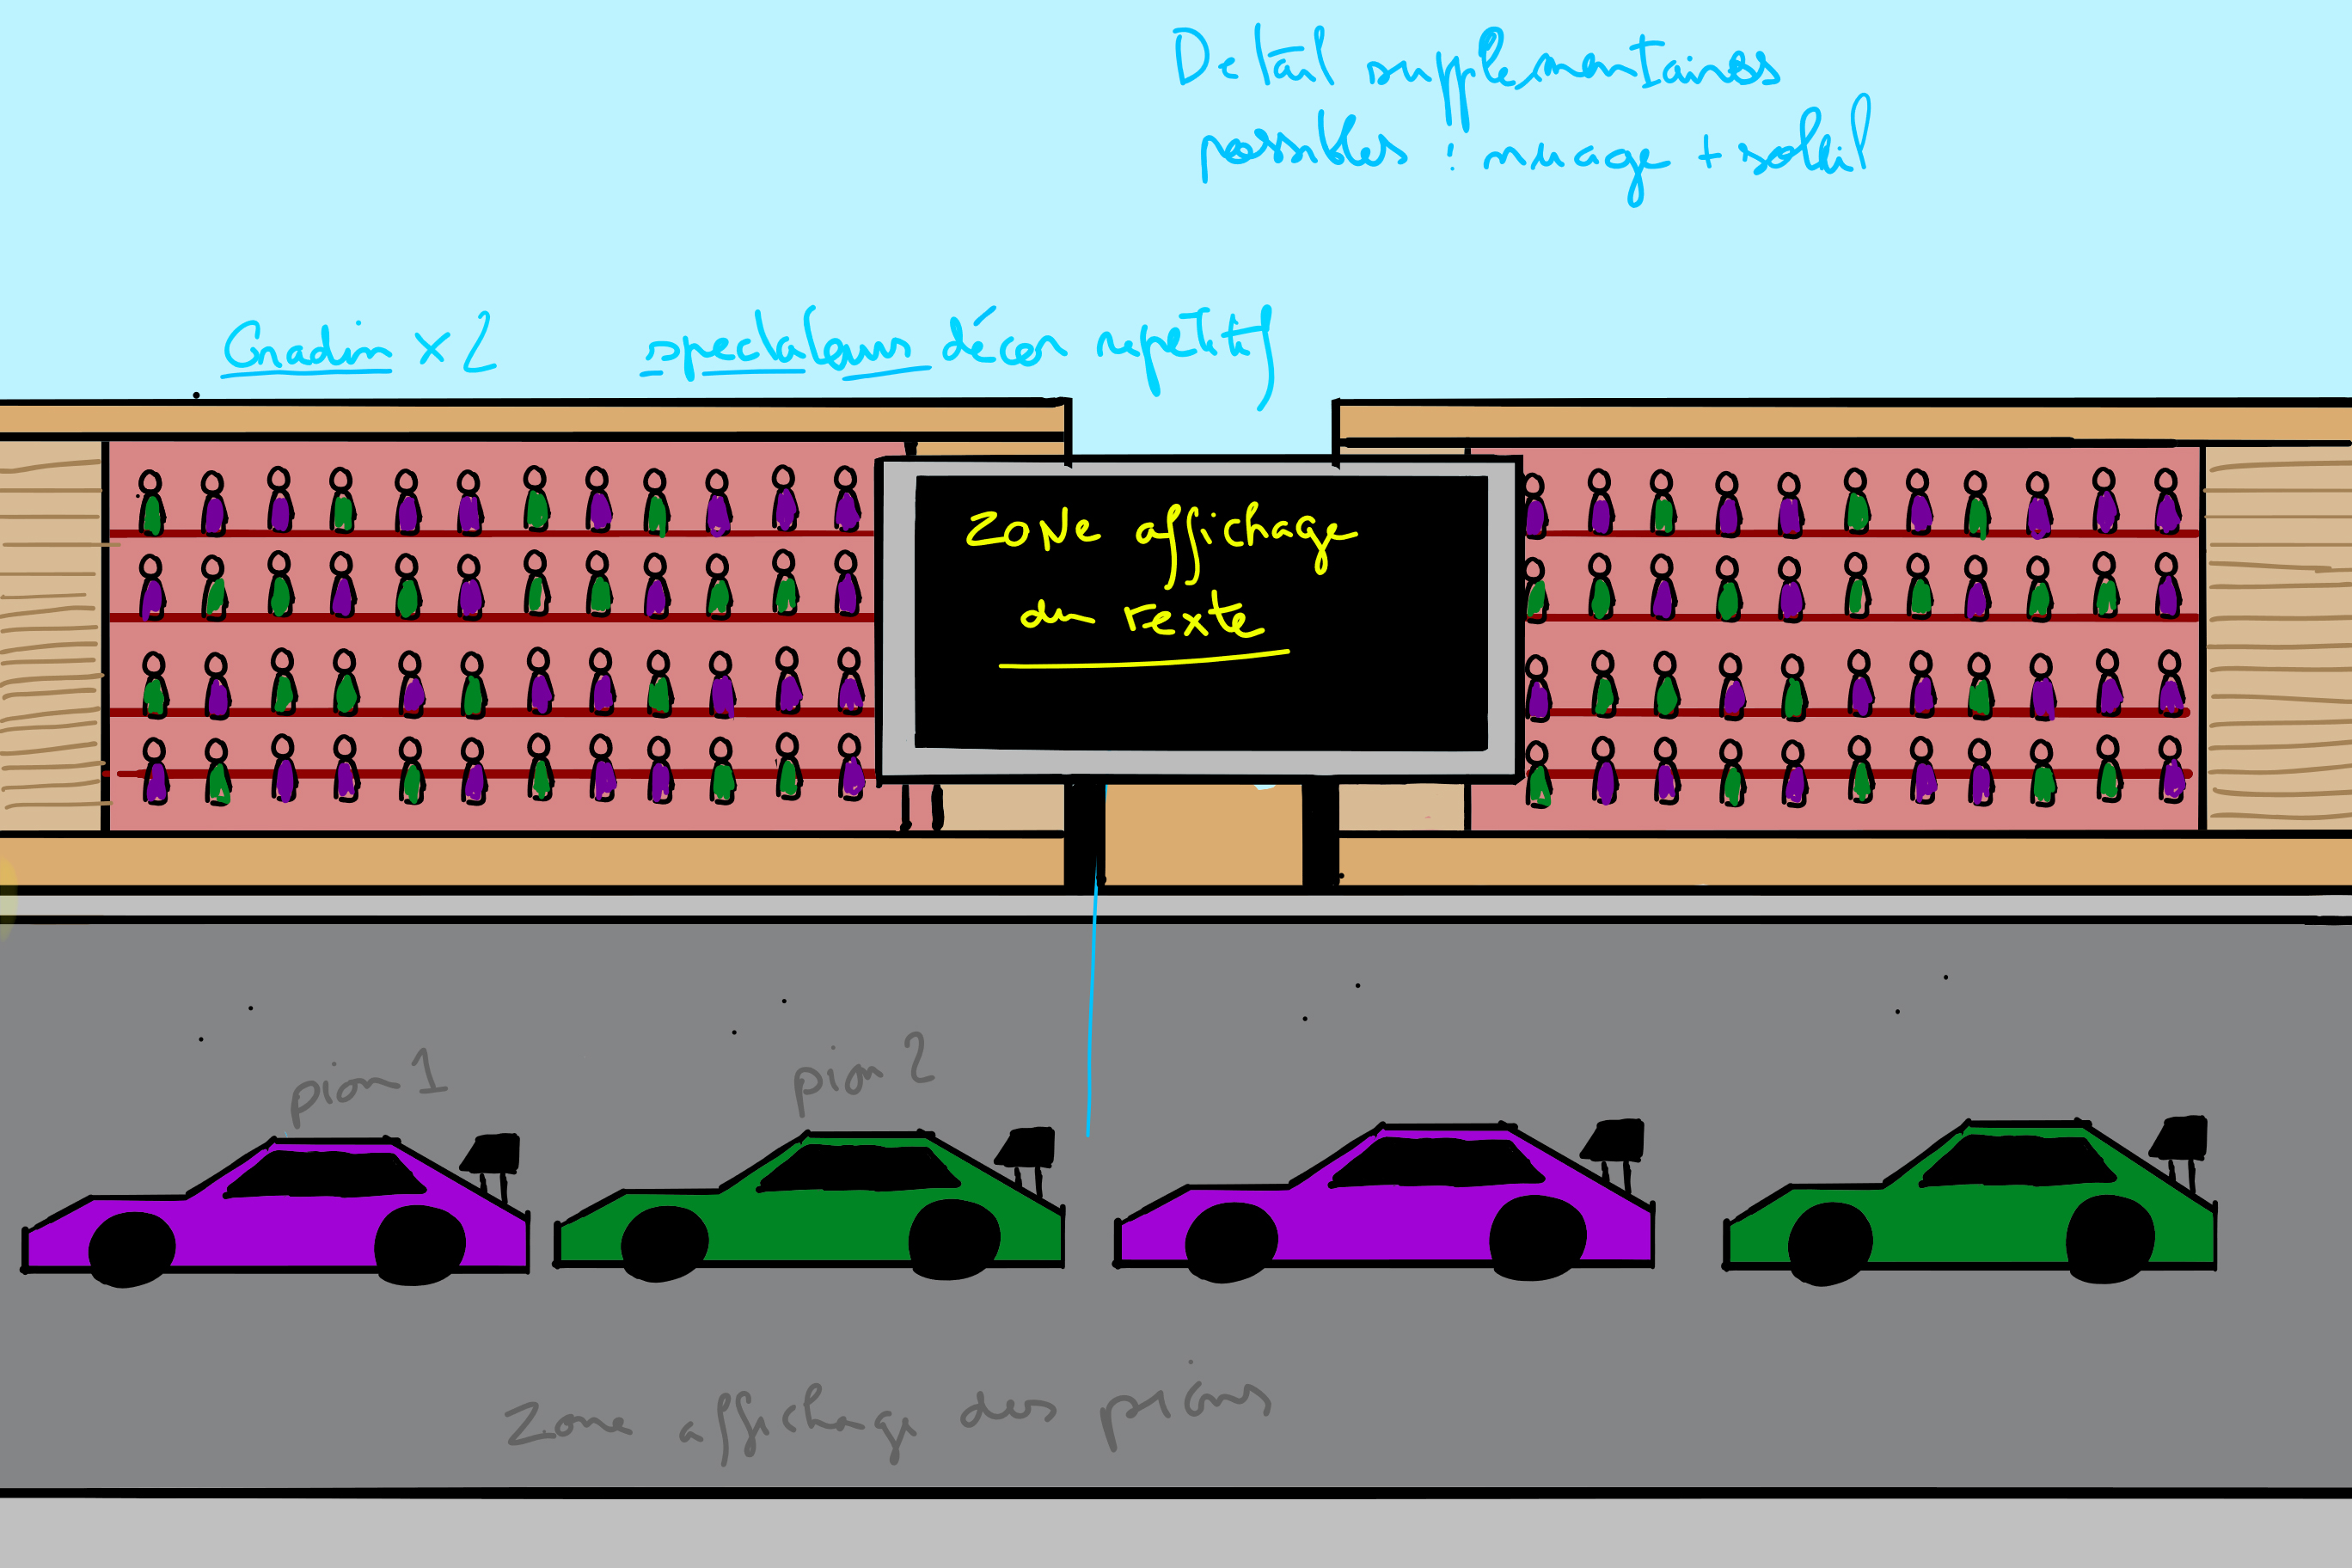 Détail supplémentaires
possibles : nuage + soleil
Gradin x 2
spectateurs décor répétitif
Zone affichage
du texte
pion 1
pion 2
Zone affichage des pions